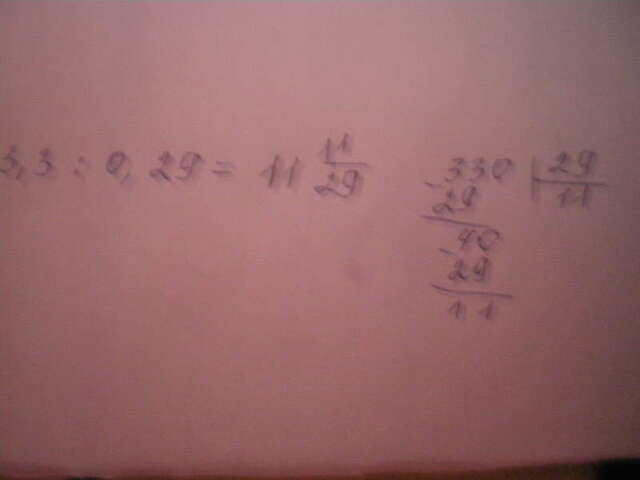 3,3 : 0,29 = 11 11/29
- 330 | 29
29 | 11
- 40
29
11